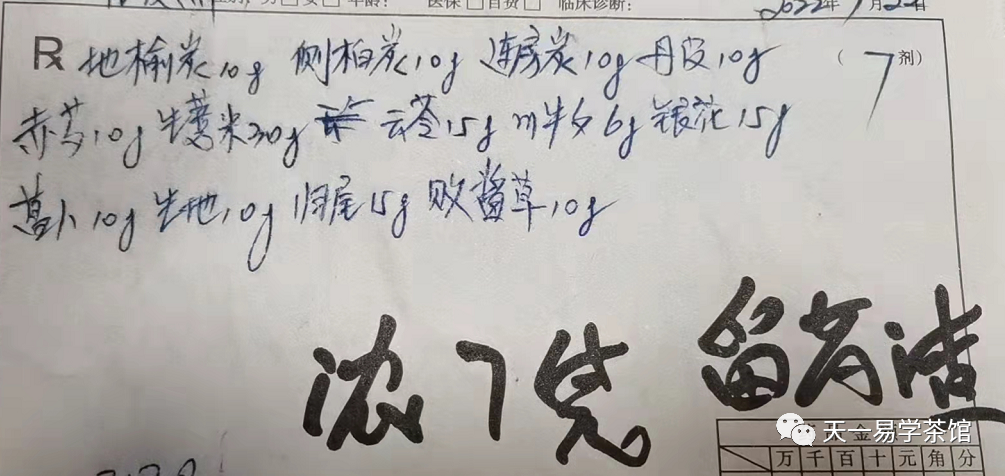 医保□ 自费□ 临床诊断： 2022年7月22日
R 地榆炭10g 侧柏炭10g 莲房炭10g 丹皮10g （7剂）
赤芍10g 生薏米30g 云苓15g 川牛夕6g 银花15g
10g 生地10g 归尾15g 败酱草10g
浓7煲 留药渣
天一易学茶馆
金
万千百十元角分